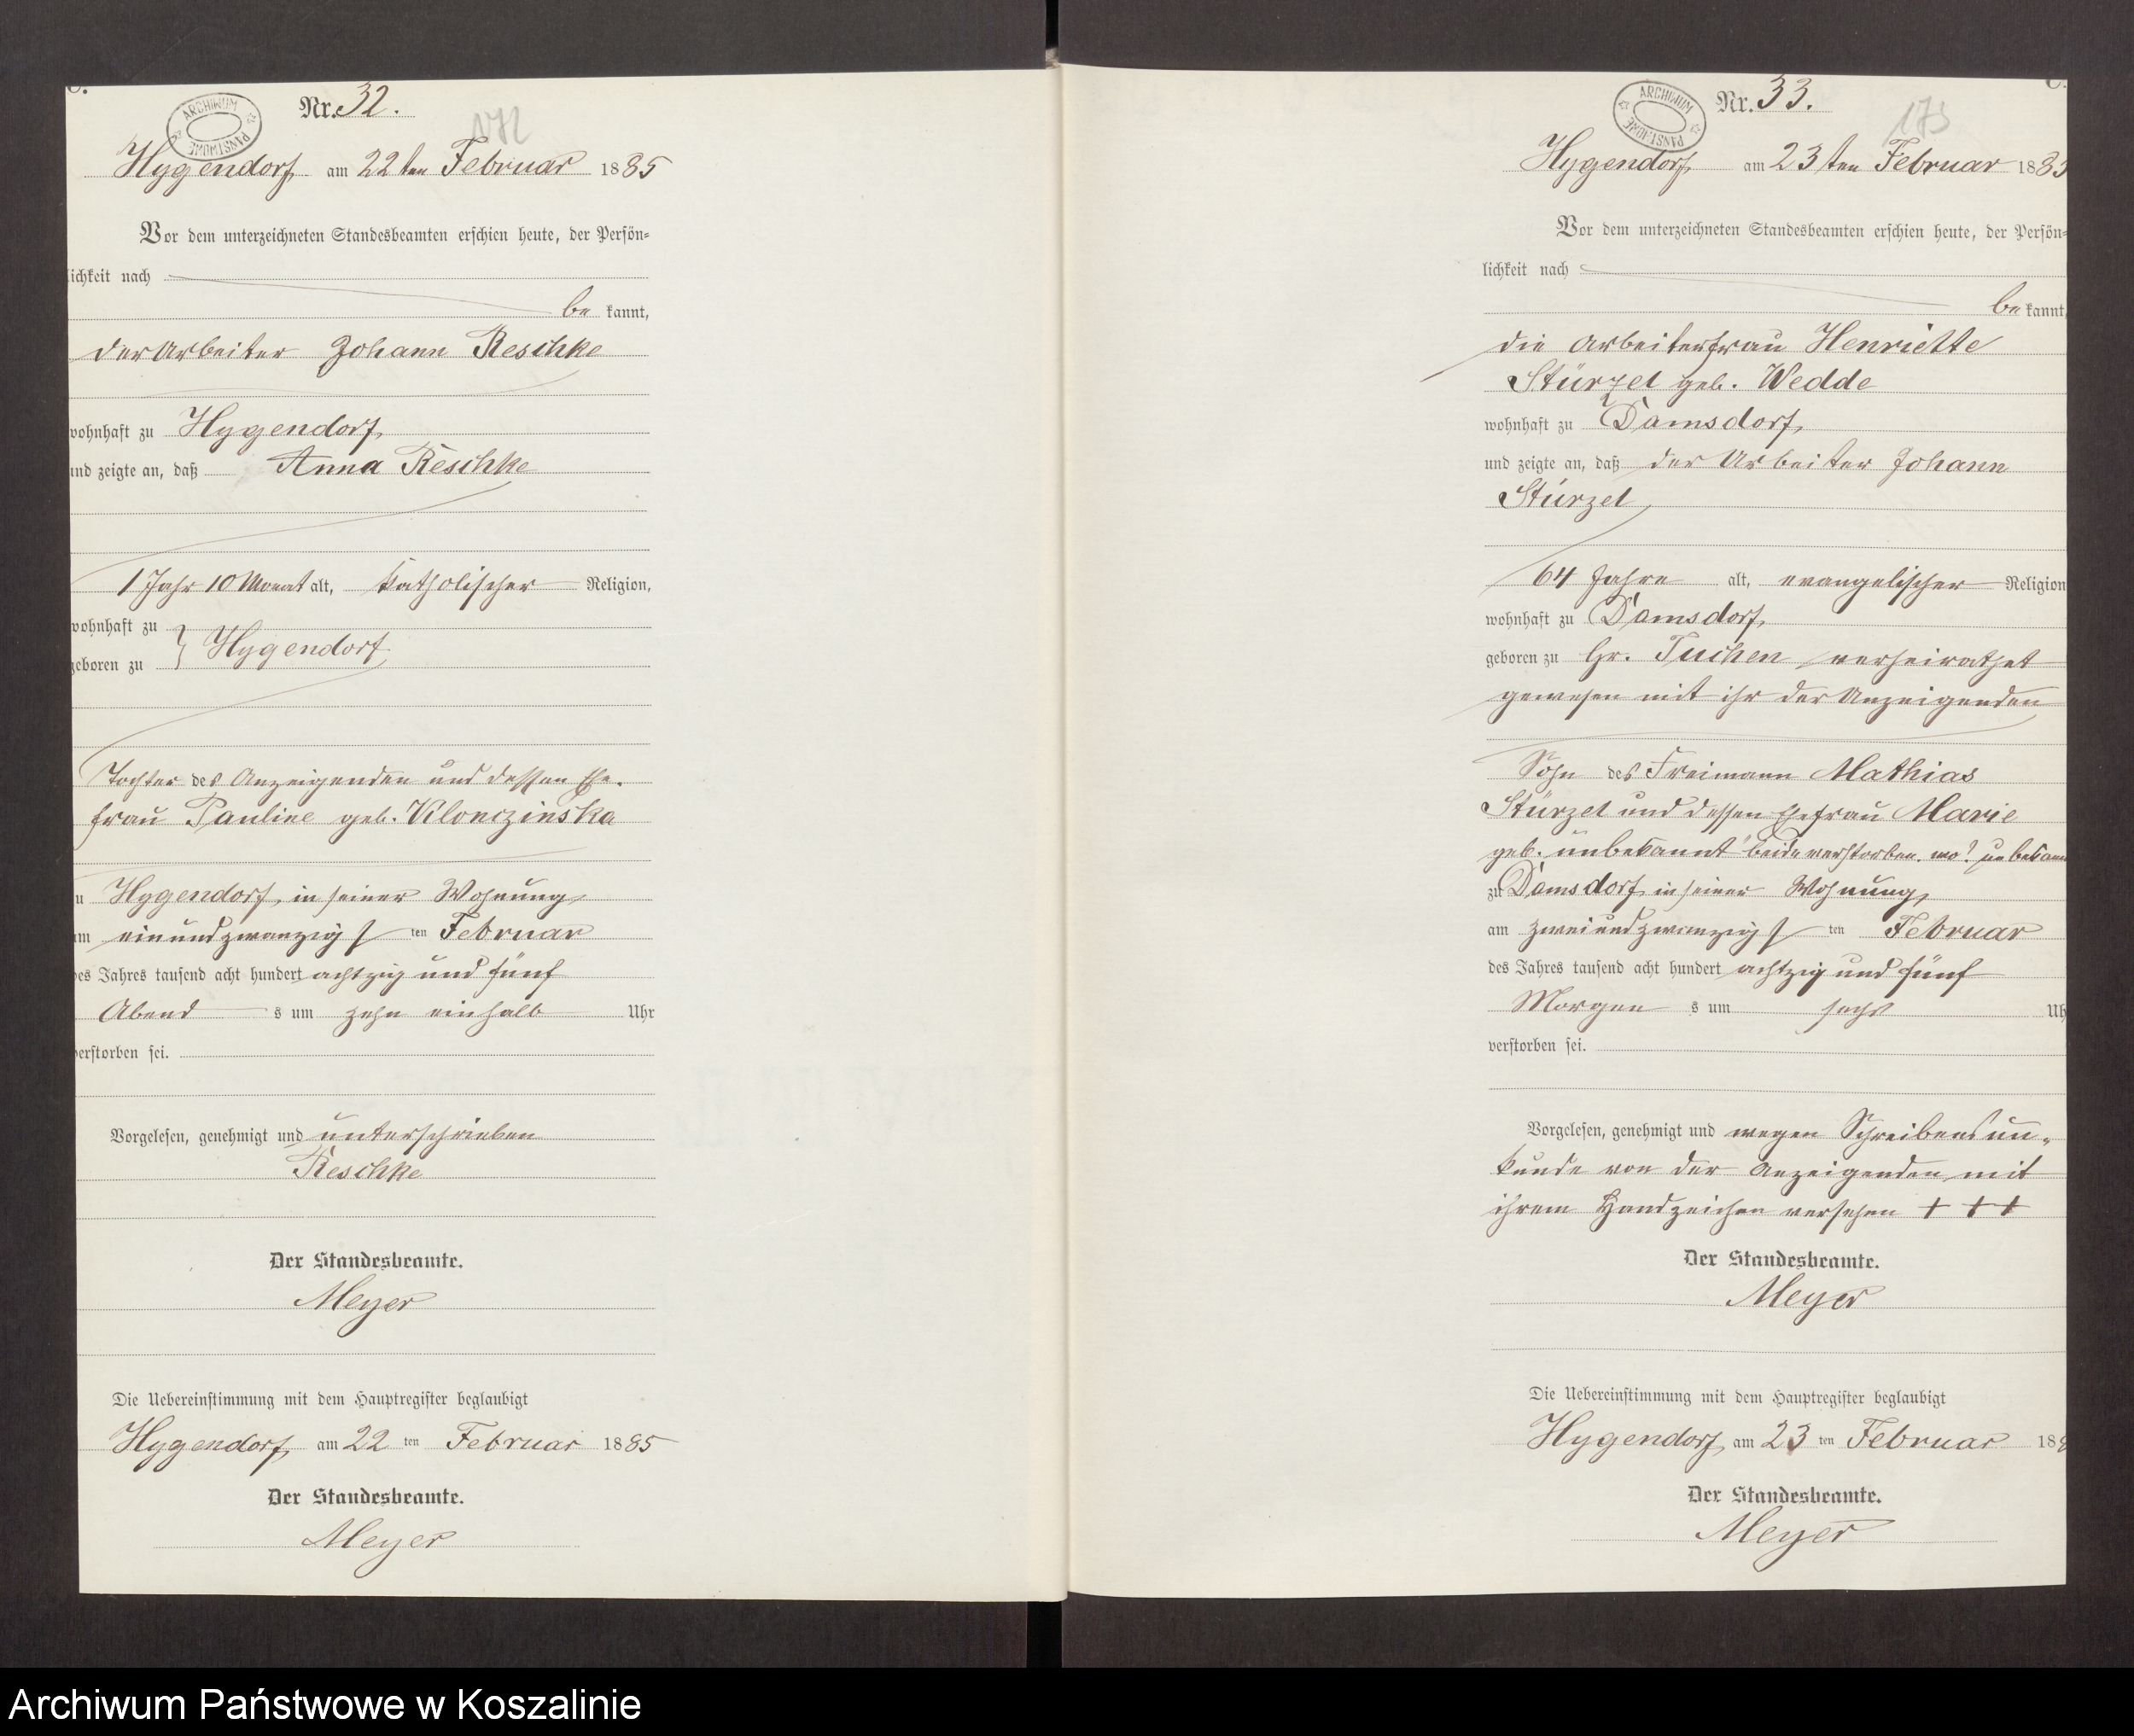 C.
ARCHIWUM PAŃSTWOWE
Nr. 32.
172
Hygendorf am 22ten Februar 1885
Vor dem unterzeichneten Standesbeamten erschien heute, der Persön=
lichkeit nach
be kannt,
der Arbeiter Johann Reschke
wohnhaft zu Hygendorf,
und zeigte an, daß Anna Reschke
1 Jahr 10 Monat alt, katholischer Religion,
wohnhaft zu
geboren zu } Hygendorf
Tochter des Anzeigenden und dessen Ehe-
frau Pauline geb.
zu Hygendorf, in seiner Wohnung
am einundzwanzigsten Februar
des Jahres tausend acht hundert achtzig und fünf
Abend s um zehn einhalb Uhr
verstorben sei.
Vorgelesen, genehmigt und unterschrieben
Reschke
Der Standesbeamte.
Meyer
Die Uebereinstimmung mit dem Hauptregister beglaubigt
Hygendorf, am 22 ten Februar 1885
Der Standesbeamte.
Meyer
C.
ARCHIWUM PAŃSTWOWE
Nr. 33.
173
Hygendorf, am 23ten Februar 1885
Vor dem unterzeichneten Standesbeamten erschien heute, der Persön=
lichkeit nach
be kannt,
die Arbeiterfrau Henriette
Stürzel geb. Wedde
wohnhaft zu Damsdorf,
und zeigte an, daß der Arbeiter Johann
Stürzel
64 Jahre alt, evangelischer Religion
wohnhaft zu Damsdorf,
geboren zu Gr. Tuchen, verheirathet
gewesen mit ihr der Anzeigenden
Sohn des Freimann Mathias
Stürzel und dessen Ehefrau Marie
geb. unbekannt beide verstorben. wo? unbekannt
zu Damsdorf in seiner Wohnung,
am zweiundzwanzigsten Februar
des Jahres tausend acht hundert achtzig und fünf
Morgen s um sechs Uh
verstorben sei.
Vorgelesen, genehmigt und wegen Schreibensun-
kunde von der Anzeigenden mit
ihrem Handzeichen versehen + + +
Der Standesbeamte.
Meyer
Die Uebereinstimmung mit dem Hauptregister beglaubigt
Hygendorf, am 23 ten Februar 188
Der Standesbeamte.
Meyer
Archiwum Państwowe w Koszalinie